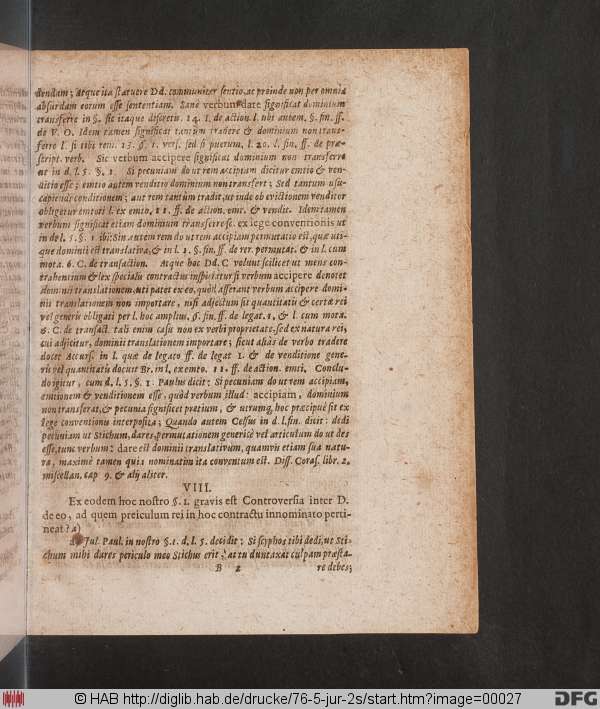 dendam; atque ita statuere Dd. communiter sentio, ac proinde non per omnia
absurdam eorum esse sententiam. Sanè verbum dare significat dominium
transferre in §. sic itaque discretis. 14. I. de action. l. ubi autem. §. fin. ff.
de V. O. Idem tamen significat tantùm tradere & dominium non trans-
ferre l. si tibi rem. 13. §. 1. vers. sed si puerum, l. 20. l. fin. ff. de præ-
script. verb. Sic verbum accipere significat dominium non transferre
ut in d. l. 5. §. 1. Si pecuniam do ut rem accipiam dicitur emtio & ven-
ditio esse; emtio autem venditio dominium non transfert; Sed tantum usu-
capiendi conditionem; aut rem tantùm tradit, ut inde ob evictionem venditor
obligetur emtori l. ex emto, 11 ff. de action. emt. & vendit. Idem tamen
verbum significat etiam dominium transferre sc. ex lege conventionis ut
in d. l. 5. §. 1 ibi: Sin autem rem do ut rem accipiam permutatio est, quæ utri-
que dominii est translativa, & in l. 1. §. fin. ff. de rer. permutat. & in l. cum
mota. 6. C. de transaction. Atque hoc Dd. C volunt scilicet ut mens con-
trahentium & lex specialis contractus inspiciatur si verbum accipere denotet
dominii translationem, uti patet ex eo, quòd asserant verbum accipere domi-
nii translationem non importare, nisi adjectum sit quantitati & certæ rei
vel generis obligati per l. hoc amplius, §. fin. ff. de legat. 1, & l. cum mota.
6. C. de transact. tali enim casu non ex verbi proprietate, sed ex natura rei,
cui adjicitur, dominii translationem importare; sicut aliàs de verbo tradere
docet Accurs. in l. quæ de legato ff. de legat 1. & de venditione gene-
ris vel quantitatis docuit Br. in l. ex emto. 11. ff. de action. emti. Conclu-
do igitur, cum d. l. 5, §. 1. Paulus dicit: Si pecuniam do ut rem accipiam,
emtionem & venditionem esse, quòd verbum illud: accipiam, dominium
non transferat, & pecunia significet pretium, & utrumq; hoc præcipuè sit ex
lege conventionis interposita; Quando autem Celsus in d. l. fin. dicit: dedi
pecuniam ut Stichum, dares, permutationem genericè vel articulum do ut des
esse, tum verbum: dare est dominii translativum, quamvis etiam suâ natu-
râ, maximè tamen quia nominatim ita conventum est. Diss. Coras. libr. 2.
miscellan. cap 9. & alij aliter.
VIII.
Ex eodem hoc nostro §. 1. gravis est Controversia inter D.
de eo, ad quem preiculum rei in hoc contractu innominato perti-
neat? a)
a) Jul. Paul. in nostro §. 1. d. l. 5. decidit; Si scyphos tibi dedi, ut Sti-
chum mihi dares periculo meo Stichus erit, at tu duntaxat culpam præsta-
B 2 re debes;
© HAB http://diglib.hab.de/drucke/76-5-jur-2s/start.htm?image=00027
DFG